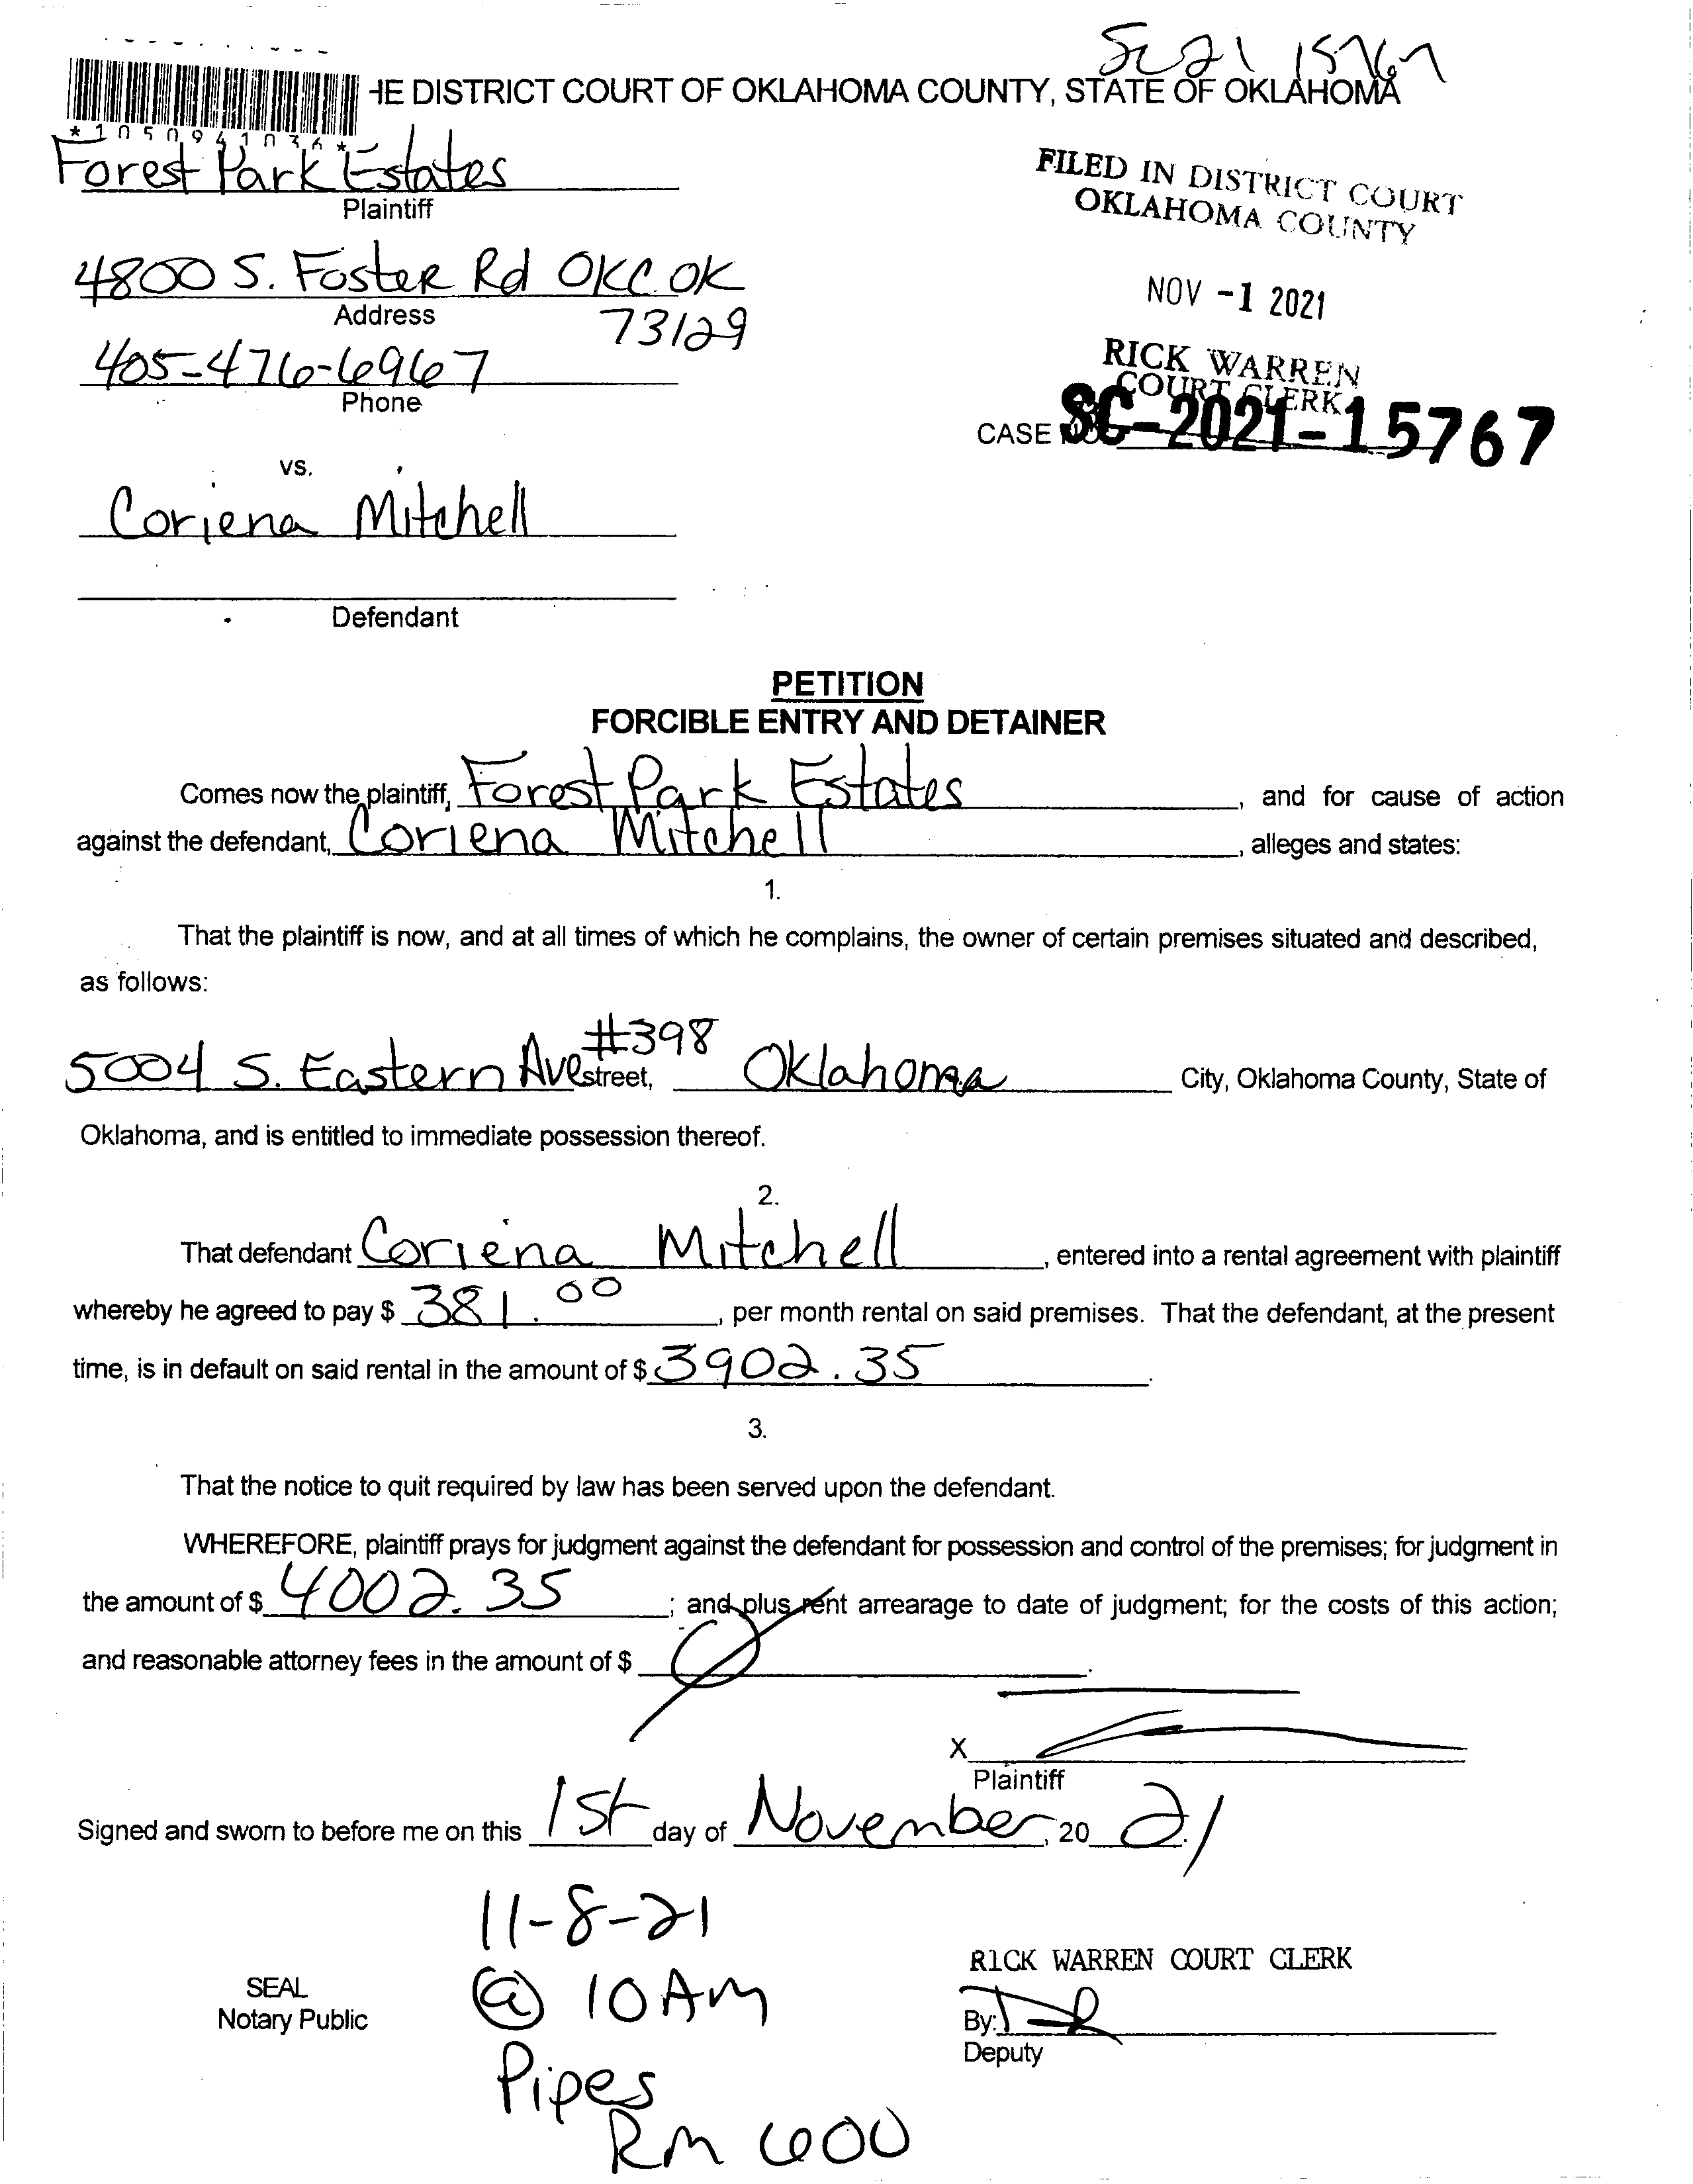 SC21 15767
HE DISTRICT COURT OF OKLAHOMA COUNTY, STATE OF OKLAHOMA
*1050941036*
Forest Park Estates
Plaintiff
FILED IN DISTRICT COURT
OKLAHOMA COUNTY
4800 S. Foster Rd OKC OK
Address
73129
NOV -1 2021
405-476-6967
Phone
RICK WARREN
COURT CLERK
CASE NO. SC-2021-15767
vs.
Coriena Mitchell
Defendant
PETITION
FORCIBLE ENTRY AND DETAINER
Comes now the plaintiff, Forest Park Estates, and for cause of action
against the defendant, Coriena Mitchell, alleges and states:
1.
That the plaintiff is now, and at all times of which he complains, the owner of certain premises situated and described,
as follows:
5004 S. Eastern Ave #398 street, Oklahoma City, Oklahoma County, State of
Oklahoma, and is entitled to immediate possession thereof.
2.
That defendant Coriena Mitchell, entered into a rental agreement with plaintiff
whereby he agreed to pay $ 381.00, per month rental on said premises. That the defendant, at the present
time, is in default on said rental in the amount of $ 3902.35.
3.
That the notice to quit required by law has been served upon the defendant.
WHEREFORE, plaintiff prays for judgment against the defendant for possession and control of the premises; for judgment in
the amount of $ 4002.35; and plus rent arrearage to date of judgment; for the costs of this action;
and reasonable attorney fees in the amount of $ 0.
X
Plaintiff
Signed and sworn to before me on this 1st day of November, 20 21.
11-8-21
@ 10 AM
Pipes
Rm 600
SEAL
Notary Public
R1CK WARREN COURT CLERK
By:
Deputy